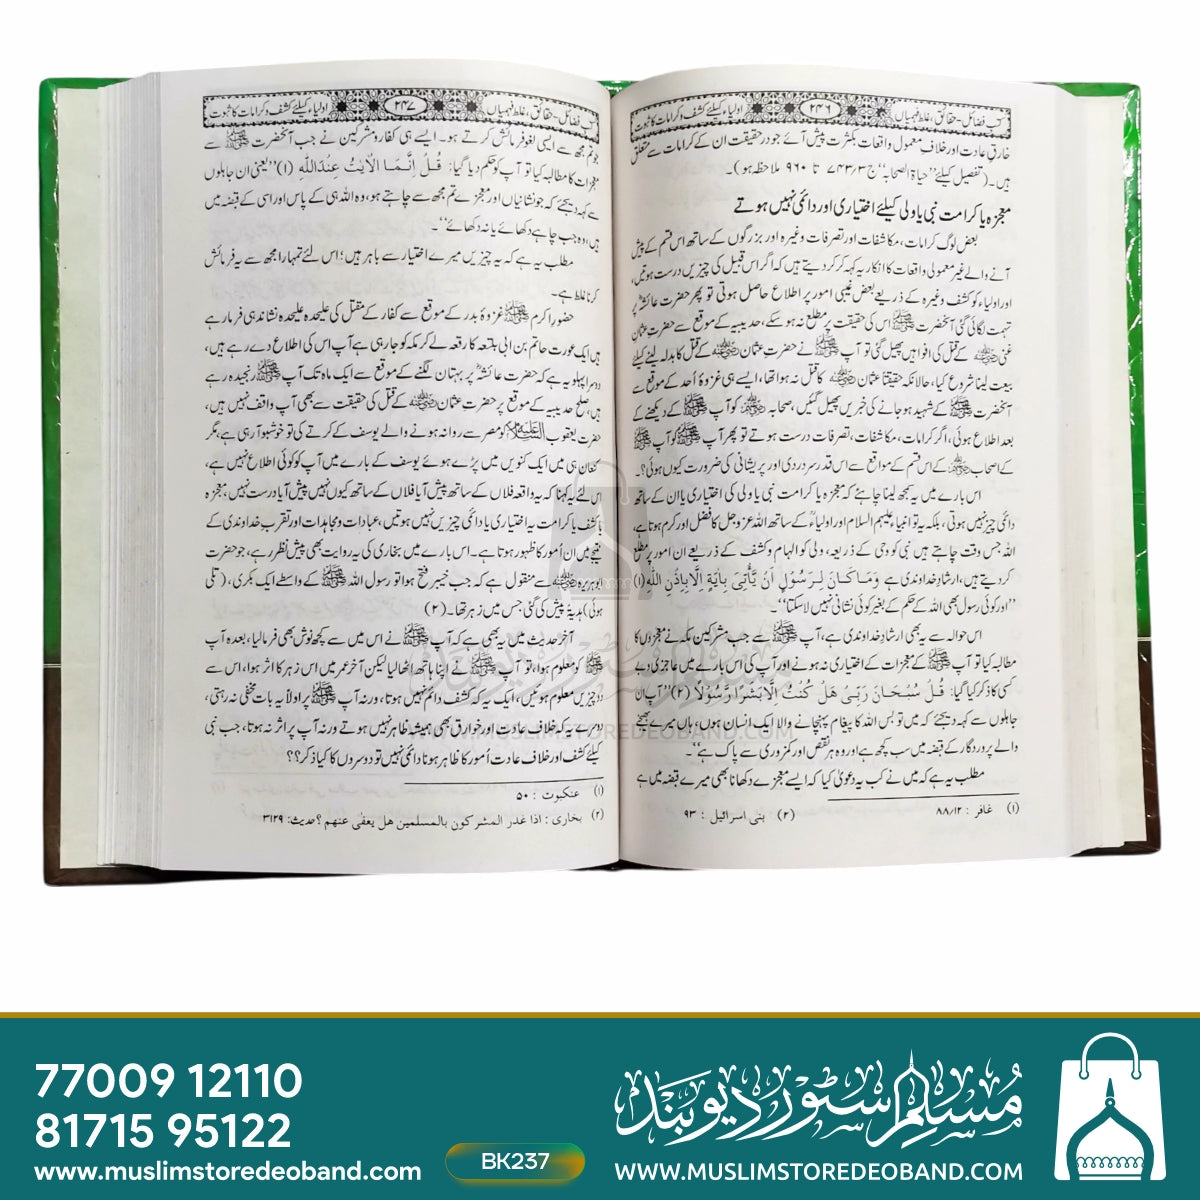 کتب فضائل-حقائق، غلط فہمیاں ۲۴۶ اولیاء کیلئے کشف و کرامات کا ثبوت
خارقِ عادت اور خلاف معمول واقعات بکثرت پیش آئے جو درحقیقت ان کے کرامات سے متعلق
ہیں۔ (تفصیل کیلئے ’’حیاۃ الصحابہ‘‘ ج۳/۷۴۳ تا ۹۶۰ ملاحظہ ہو)۔
معجزہ یا کرامت نبی یا ولی کیلئے اختیاری اور دائمی نہیں ہوتے
بعض لوگ کرامات، مکاشفات اور تصرفات وغیرہ اور بزرگوں کے ساتھ اس قسم کے پیش
آنے والے غیر معمولی واقعات کا انکار یہ کہہ کر کر دیتے ہیں کہ اگر اس قبیل کی چیزیں درست ہوتیں،
اور اولیاء کو کشف وغیرہ کے ذریعے بعض غیبی امور پر اطلاع حاصل ہوتی تو پھر حضرت عائشہؓ پر
تہمت لگائی گئی آنحضرت ﷺ اس کی حقیقت پر مطلع نہ ہو سکے، حدیبیہ کے موقع سے حضرت عثمان
غنی ؓ کے قتل کی افواہیں پھیل گئی تو آپ ﷺ نے حضرت عثمان ؓ کے قتل کا بدلہ لینے کیلئے
بیعت لینا شروع کیا، حالانکہ حقیقتاً عثمان ؓ کا قتل نہ ہوا تھا، ایسے ہی غزوۂ اُحد کے موقع سے
آنحضرت ﷺ کے شہید ہو جانے کی خبریں پھیل گئیں، صحابہ ؓ کو آپ ﷺ کے دیکھنے کے
بعد اطلاع ہوئی، اگر کرامات، مکاشفات، تصرفات درست ہوتے تو پھر آپ ﷺ کو آپ ﷺ
کے اصحاب ؓ کے اس قسم کے مواقع سے اس قدر سردردی اور پریشانی کی ضرورت کیوں ہوئی؟۔
اس بارے میں یہ سمجھ لینا چاہئے کہ معجزہ یا کرامت نبی یا ولی کی اختیاری یا ان کے ساتھ
دائمی چیز نہیں ہوتی، بلکہ یہ تو انبیاء علیہم السلام اور اولیاءؒ کے ساتھ اللہ عز و جل کا فضل اور کرم ہوتا ہے،
اللہ جس وقت چاہتے ہیں نبی کو وحی کے ذریعہ، ولی کو الہام و کشف کے ذریعے ان امور پر مطلع
کر دیتے ہیں، ارشادِ خداوندی ہے وَمَا كَانَ لِرَسُوْلٍ اَنْ يَّأْتِىَ بِاٰيَةٍ اِلَّا بِاِذْنِ اللهِ (۱)
’’اور کوئی رسول بھی اللہ کے حکم کے بغیر کوئی نشانی نہیں لا سکتا‘‘۔
اس حوالہ سے یہ بھی ارشادِ خداوندی ہے، آپ ﷺ سے جب مشرکین مکہ نے معجزوں کا
مطالبہ کیا تو آپ ﷺ کے معجزات کے اختیاری نہ ہونے اور آپ کی اس بارے میں عاجزی و بے
کسی کا ذکر کیا گیا: قُلْ سُبْحَانَ رَبِّىْ هَلْ كُنْتُ اِلَّا بَشَرًا رَّسُوْلًا (۲) ’’آپ ان
جاہلوں سے کہہ دیجئے کہ میں تو بس اللہ کا پیغام پہنچانے والا ایک انسان ہوں، ہاں میرے بھیجنے
والے پروردگار کے قبضہ میں سب کچھ ہے اور وہ ہر نقص اور کمزوری سے پاک ہے‘‘۔
مطلب یہ ہے کہ میں نے کب یہ دعویٰ کیا کہ ایسے معجزے دکھانا بھی میرے قبضہ میں ہے
(۱) غافر : ۸۸/۱۲ (۲) بنی اسرائیل : ۹۳
کتب فضائل-حقائق، غلط فہمیاں ۲۴۷ اولیاء کیلئے کشف و کرامات کا ثبوت
جو تم مجھ سے ایسی لغو فرمائش کرتے ہو۔ ایسے ہی کفار و مشرکین نے جب آنحضرت ﷺ سے
معجزات کا مطالبہ کیا تو آپ کو حکم دیا گیا: قُلْ اِنَّمَا الْاٰيٰتُ عِنْدَ اللهِ (۱) ’’یعنی ان جاہلوں
سے کہہ دیجئے کہ جو نشانیاں اور معجزے تم مجھ سے چاہتے ہو، وہ اللہ ہی کے پاس اور اسی کے قبضہ میں
ہیں، وہ جب چاہے دکھائے یا نہ دکھائے‘‘۔
مطلب یہ ہے کہ یہ چیزیں میرے اختیار سے باہر ہیں؛ اس لئے تمہارا مجھ سے یہ فرمائش
کرنا غلط ہے۔
حضورِ اکرم ﷺ غزوۂ بدر کے موقع سے کفار کے مقتل کی علیحدہ علیحدہ نشاندہی فرما رہے
ہیں ایک عورت حاتم بن ابی بلتعہ کا رقعہ لے کر مکہ کو جا رہی ہے آپ اس کی اطلاع دے رہے ہیں،
دوسرا پہلو یہ ہے کہ حضرت عائشہؓ پر بہتان لگنے کے موقع سے ایک ماہ تک آپ ﷺ رنجیدہ رہے
ہیں، صلح حدیبیہ کے موقع پر حضرت عثمان ؓ کے قتل کی حقیقت سے بھی آپ واقف نہیں ہیں،
حضرت یعقوب علیہ السلام کو مصر سے روانہ ہونے والے یوسف کے کرتے کی تو خوشبو آ رہی ہے، مگر
کنعان ہی میں ایک کنویں میں پڑے ہوئے یوسف کے بارے میں آپ کو کوئی اطلاع نہیں ہے،
اس لئے یہ کہنا کہ یہ واقعہ فلاں کے ساتھ پیش آیا فلاں کے ساتھ کیوں نہیں پیش آیا درست نہیں، معجزہ
یا کشف یا کرامت یہ اختیاری یا دائمی چیزیں نہیں ہوتیں، عبادات و مجاہدات اور تقرب خداوندی کے
نتیجے میں ان اُمور کا ظہور ہوتا ہے۔ اس بارے میں بخاری کی یہ روایت بھی پیش نظر رہے، جو حضرت
ابو ہریرہ ؓ سے منقول ہے کہ جب خیبر فتح ہوا تو رسول اللہ ﷺ کے واسطے ایک بکری، (تلی
ہوئی) ہدیۃً پیش کی گئی جس میں زہر تھا۔ (۲)
آخر حدیث میں یہ بھی ہے کہ آپ ﷺ نے اس میں سے کچھ نوش بھی فرما لیا، بعدہ آپ
ﷺ کو معلوم ہوا، تو آپ ﷺ نے اپنا ہاتھ اٹھا لیا لیکن آخر عمر میں اس زہر کا اثر ہوا، اس سے
دو چیزیں معلوم ہوئیں، ایک یہ کہ کشف دائم نہیں ہوتا، ورنہ آپ ﷺ پر اولاً یہ بات مخفی نہ رہتی،
دوسرے یہ کہ خلاف عادت اور خوارق بھی ہمیشہ ظاہر نہیں ہوتے ورنہ آپ پر اثر نہ ہوتا، جب نبی
کیلئے کشف اور خلاف عادت اُمور کا ظاہر ہونا دائمی نہیں تو دوسروں کا کیا ذکر؟؟
(۱) عنکبوت : ۵۰
(۲) بخاری : اذا غدر المشرکون بالمسلمین هل یعفی عنهم؟ حدیث: ۳۱۲۹
مسلم سٹور دیوبند
WWW.MUSLIMSTOREDEOBAND.COM
77009 12110
81715 95122
www.muslimstoredeoband.com
BK237
مسلم سٹور دیوبند
WWW.MUSLIMSTOREDEOBAND.COM